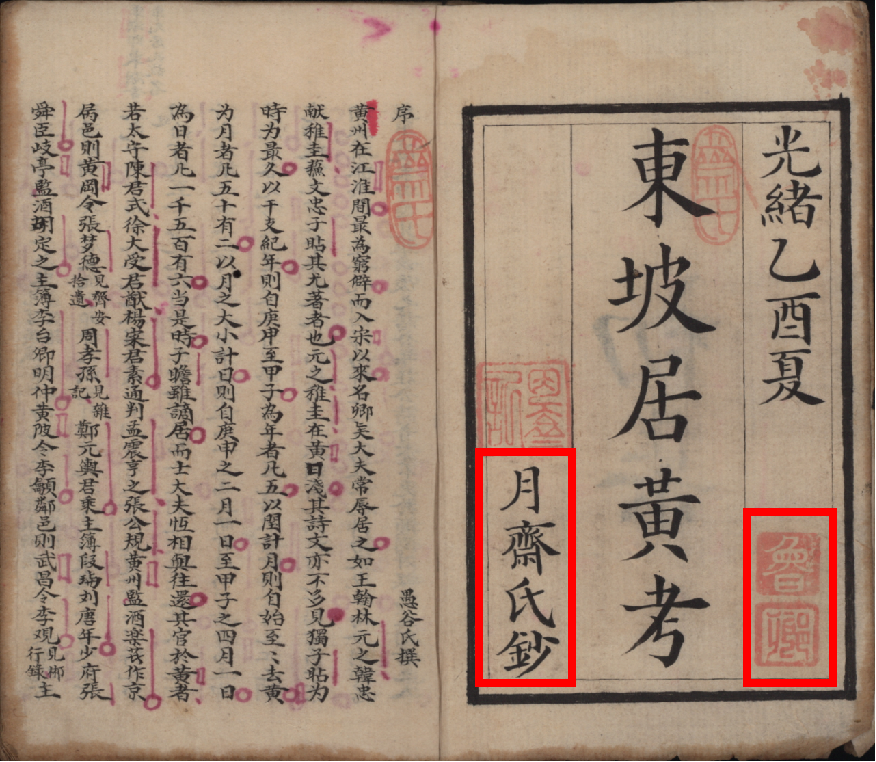 光緒乙酉夏
東坡居黃考
月齋氏鈔
序
愚谷氏撰
黃州在江淮間最為窮僻而入宋以來名卿矣大夫常辱居之如王翰林元之韓忠
献稚圭蘓文忠子贴其尤著者也元之稚圭在黃日淺其詩文亦不多見獨子贴为
時为最久以干支紀年則自庚申至甲子為年者凡五以閏計月則自始至〻去黃
为月者凡五十有二以月之大小計日則自庚申之二月一日至甲子之四月一日
為日者凡一千五百有六当是時子瞻雖謫居而士大夫恆相與往還其官於黃者
若太守陳君式徐大受君猷楊寀君素通判孟震亨之張公規黃州監酒樂茂作京
属邑則黃岡令張梦德見齊安拾遺周孝孫見雜記鄭元輿君乘主簿段瑀刘唐年少府張
舜臣岐亭監酒胡定之主簿李台卿明仲黃陂令李龥鄰邑則武昌令李观見郴行錄主